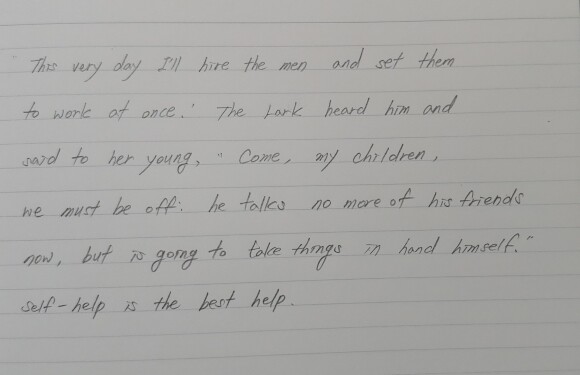 "This very day I'll hire the men and set them
to work at once.' The Lark heard him and
said to her young, " Come, my children,
we must be off: he talks no more of his friends
now, but is going to take things in hand himself."
self-help is the best help.